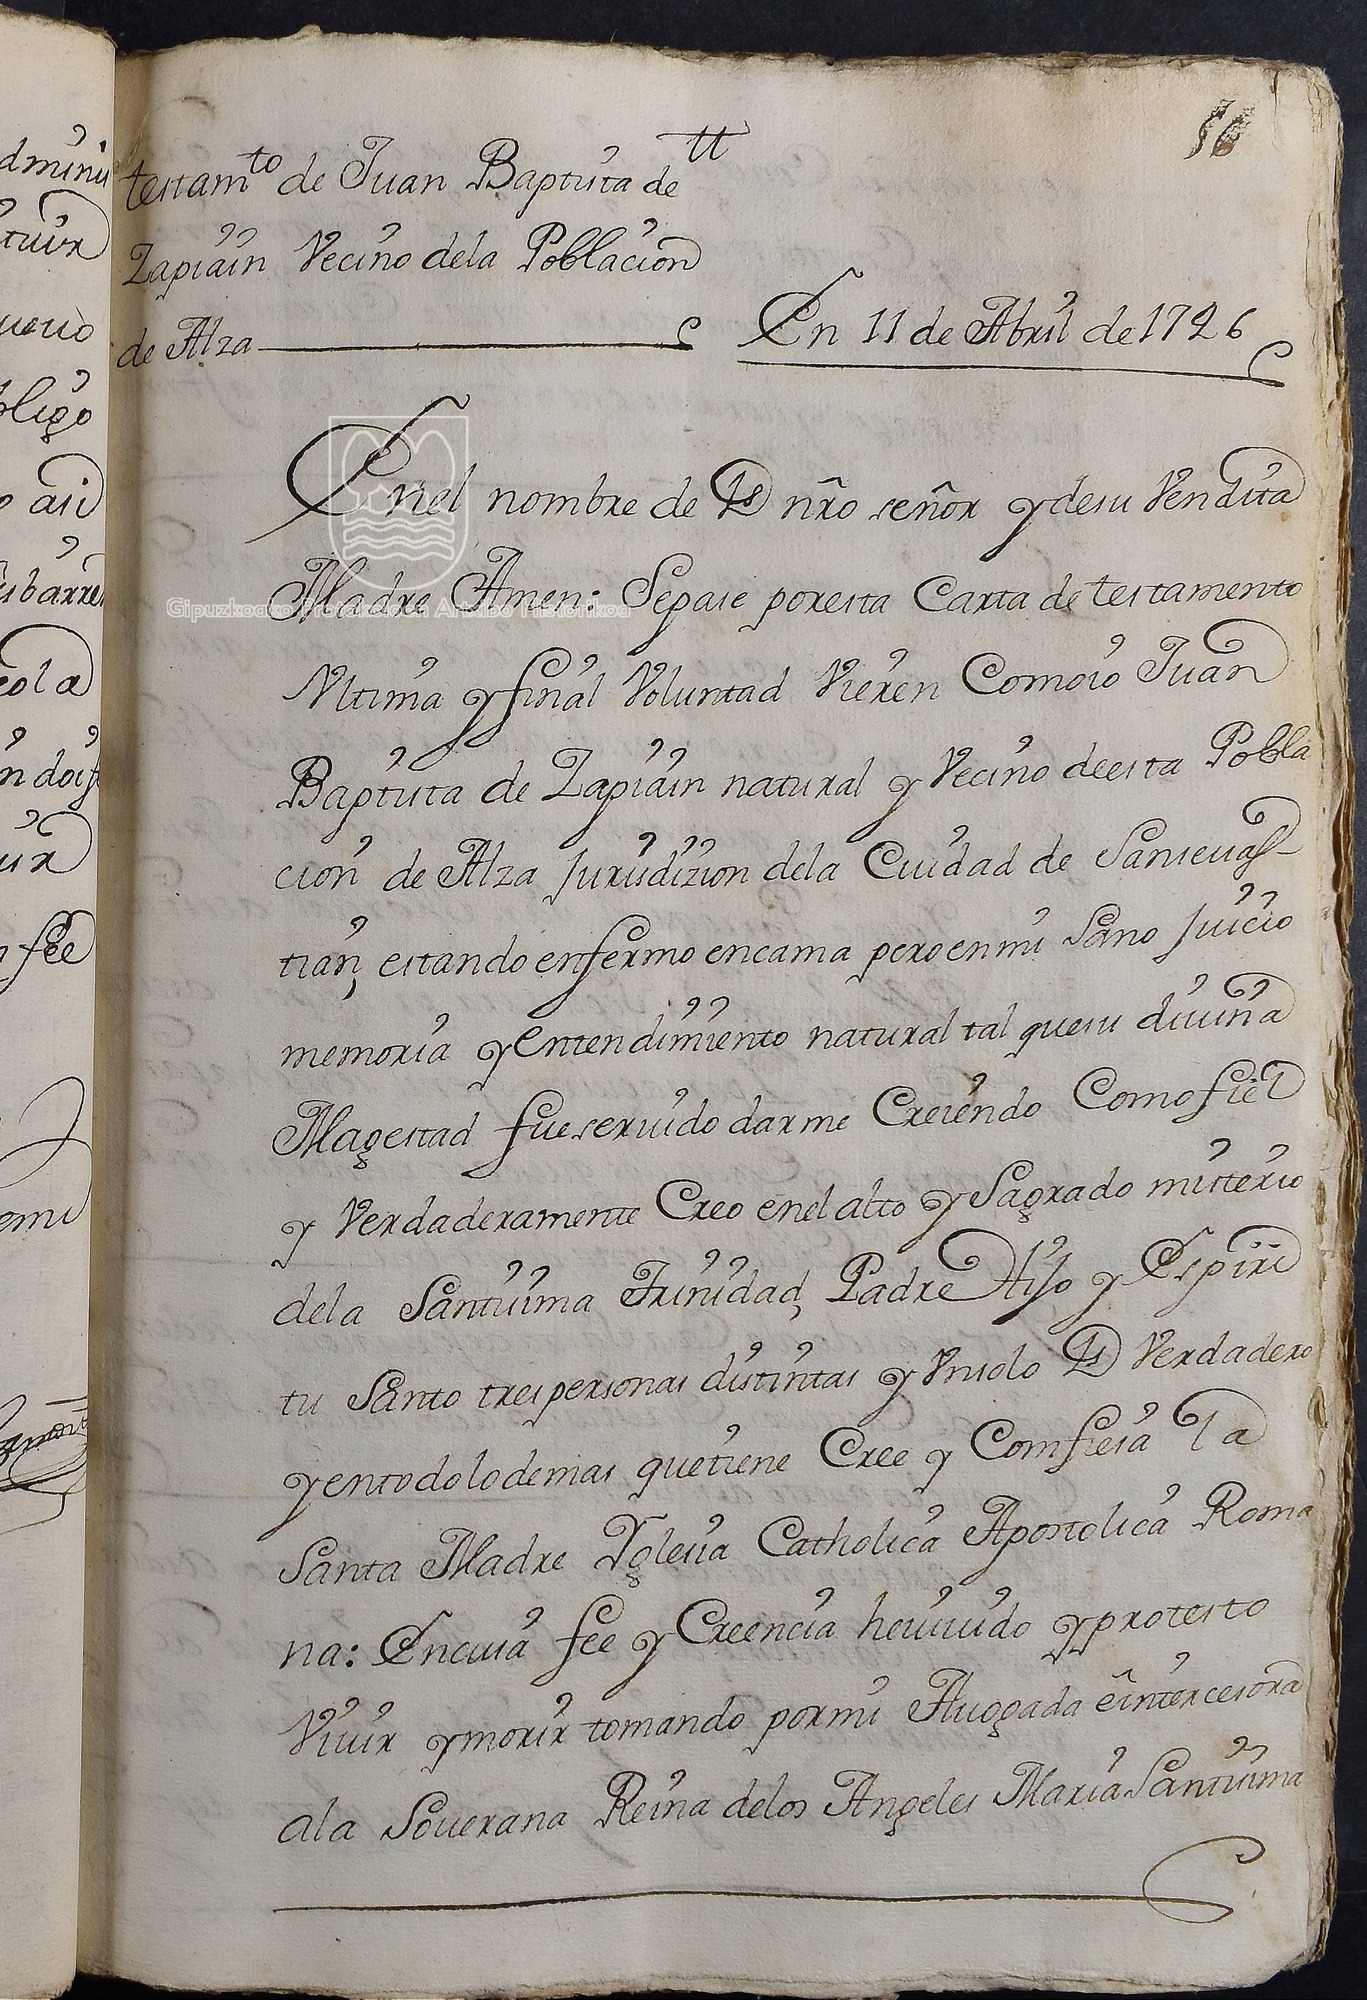 10
tt
testamto de Juan Baptista de
Zapiain Vecino dela Poblacion
de Alza
En 11 de Abril de 1726
Enel nombre de Ds nro señor y desu Vendita
Madre Amen: Sepase poresta Carta de testamento
Gipuzkoako Protokoloen Artxibo Historikoa
Vltima y final Voluntad Vieren Comoio Juan
Baptista de Zapiain natural y Vecino deesta Pobla
cion de Alza Jurisdizion dela Ciudad de Sansevas-
tian, estando enfermo encama pero enmi Sano Juicio
memoria y Entendimiento natural tal quesu divina
Magestad fue servido darme Creiendo Como fiel
y Verdaderamente Creo enel alto y Sagrado misterio
dela Santissima Trinidad, Padre Hijo y Espiri
tu Santo tres personas distintas y Vnsolo Ds Verdadero
y entodolodemas quetiene Cree y Comfiesa la
Santa Madre Yglesia Catholica Apostolica Roma
na: Encuia fee y Creencia hevivido y protesto
Vivir y morir tomando pormi Avogada eintercesora
ala Soverana Reina delos Angeles Maria Santissima